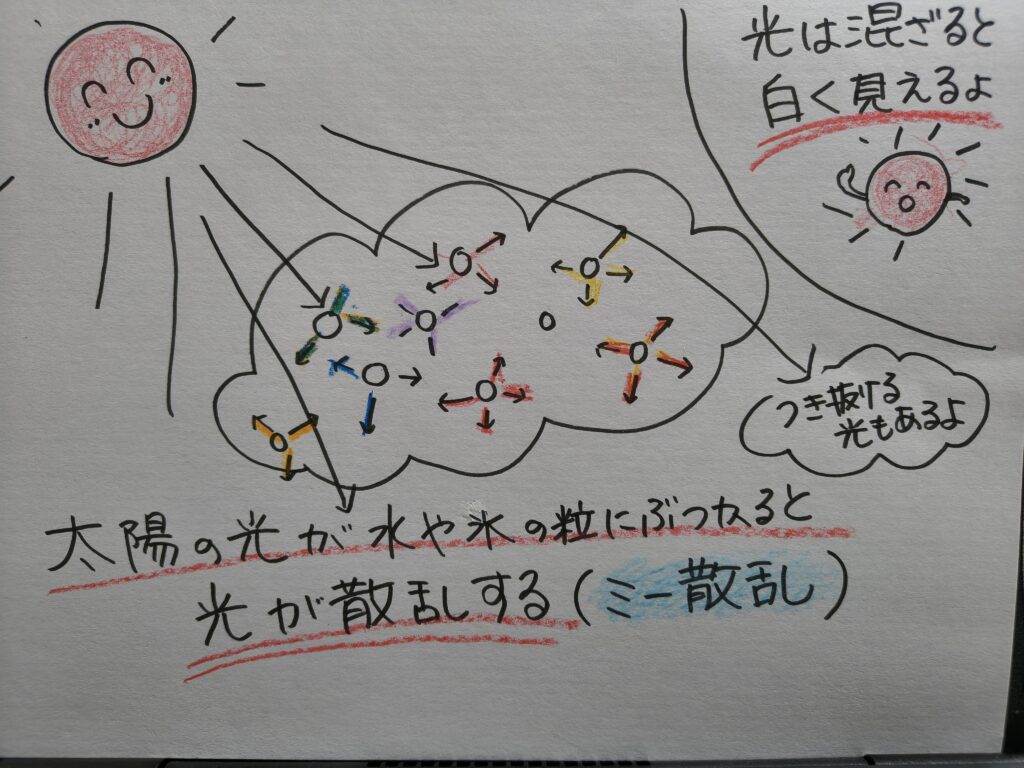 光は混ざると
白く見えるよ
つき抜ける
光もあるよ
太陽の光が水や氷の粒にぶつかると
光が散乱する(ミー散乱)